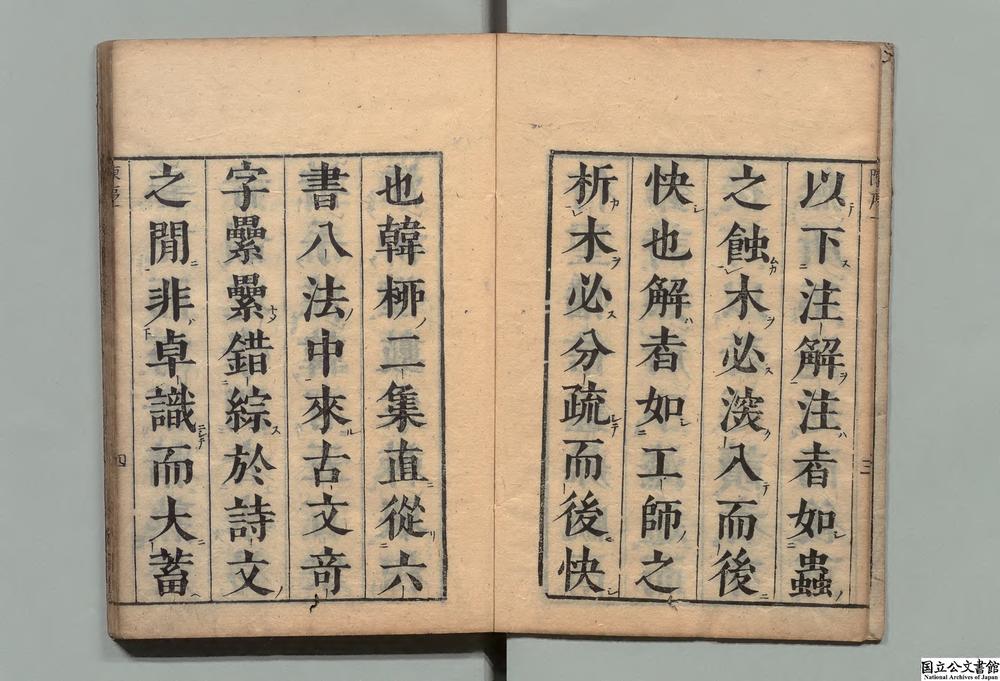 以下注解注者如蟲
之蝕木必深入而後
快也解者如工師之
析木必分疏而後快
也韓栁二集直從六
書八法中來古文奇
字纍纍錯綜於詩文
之閒非卓識而大蓄
三
四
国立公文書館
National Archives of Japan